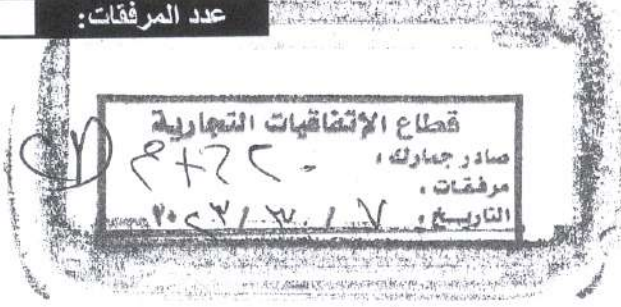 عدد المرفقات:
قطاع الإتفاقيات التجارية
صادر جمارك ،
مرفقات ،
التاريخ ، ٧ / ٣ / ٢٠٢٣